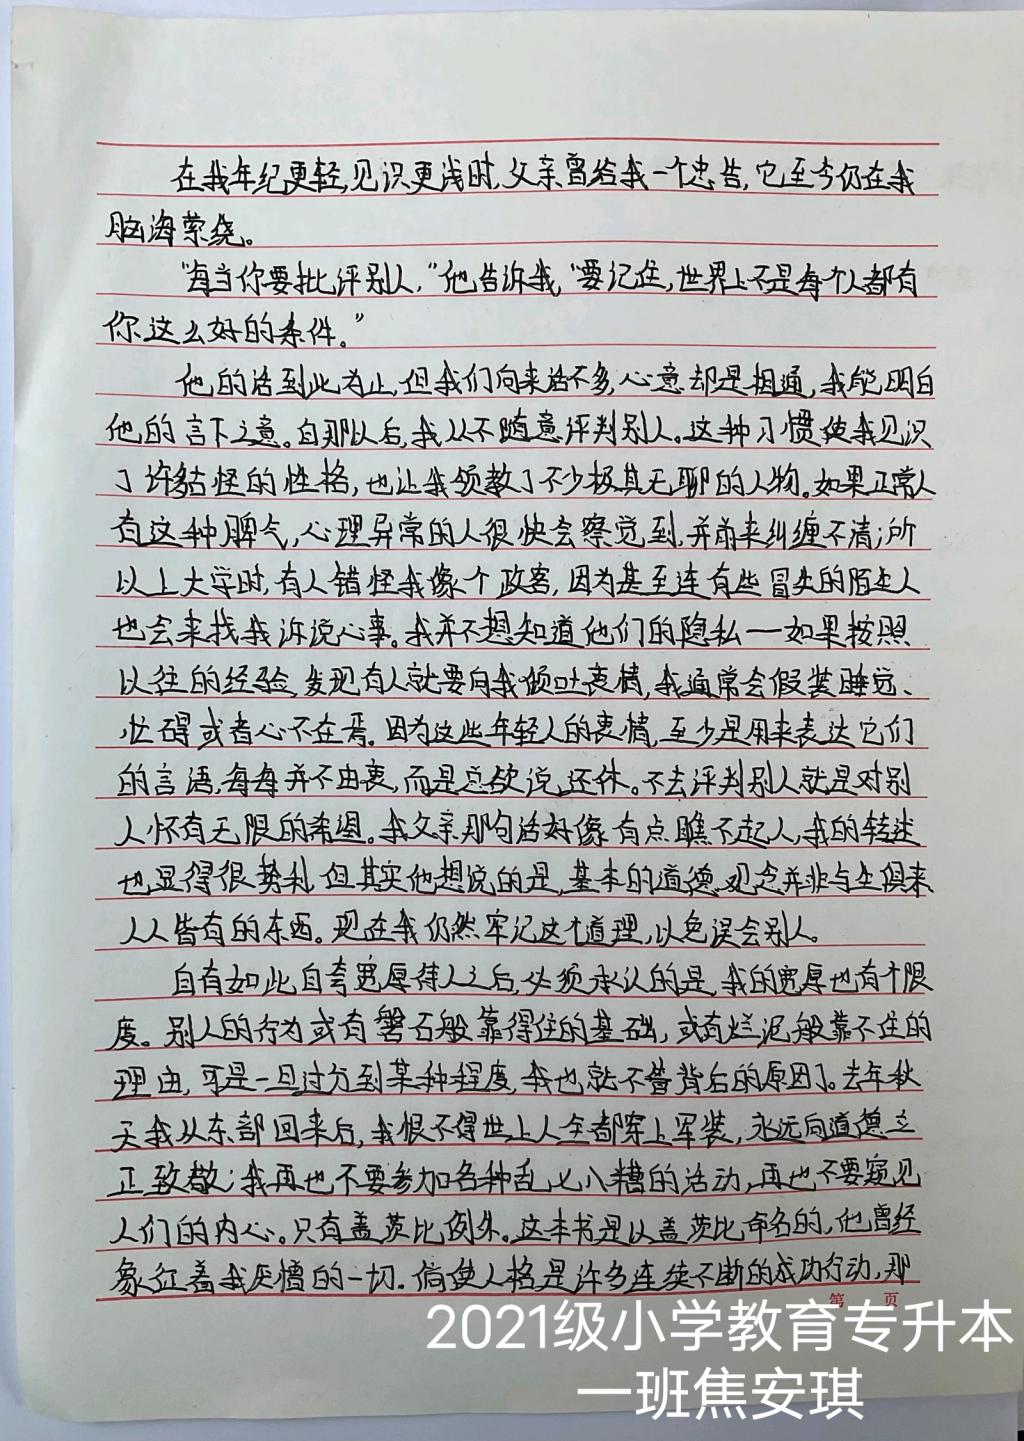 在我年纪更轻,见识更浅时,父亲曾给我一个忠告,它至今仍在我
脑海萦绕。
“每当你要批评别人,”他告诉我,“要记住,世界上不是每个人都有
你这么好的条件。”
他的话到此为止,但我们向来话不多,心意却是相通,我能明白
他的言下之意。自那以后,我从不随意评判别人。这种习惯使我见识
了许多古怪的性格,也让我领教了不少极其无聊的人物。如果正常人
有这种脾气,心理异常的人很快会察觉到,并前来纠缠不清;所
以上大学时,有人错怪我像个政客,因为甚至连有些冒失的陌生人
也会来找我诉说心事。我并不想知道他们的隐私——如果按照
以往的经验,发现有人就要向我倾吐衷情,我通常会假装睡觉、
忙碍或者心不在焉。因为这些年轻人的衷情,至少是用来表达它们
的言语,每每并不由衷,而是总欲说还休。不去评判别人就是对别
人怀有无限的希望。我父亲那句话好像有点瞧不起人,我的转述
也显得很势利,但其实他想说的是,基本的道德观念并非与生俱来、
人人皆有的东西。现在我仍然牢记这个道理,以免误会别人。
自有如此自夸宽厚待人之后,必须承认的是,我的宽厚也有个限
度。别人的行为或有磐石般靠得住的基础,或有烂泥般靠不住的
理由,可是一旦过分到某种程度,我也就不管背后的原因了。去年秋
天我从东部回来后,我恨不得世上人全都穿上军装,永远向道德立
正致敬;我再也不要参加各种乱七八糟的活动,再也不要窥见
人们的内心。只有盖茨比例外。这本书是以盖茨比命名的,他曾经
象征着我厌憎的一切。倘使人格是许多连续不断的成功行动,那
第 页
2021级小学教育专升本
一班焦安琪